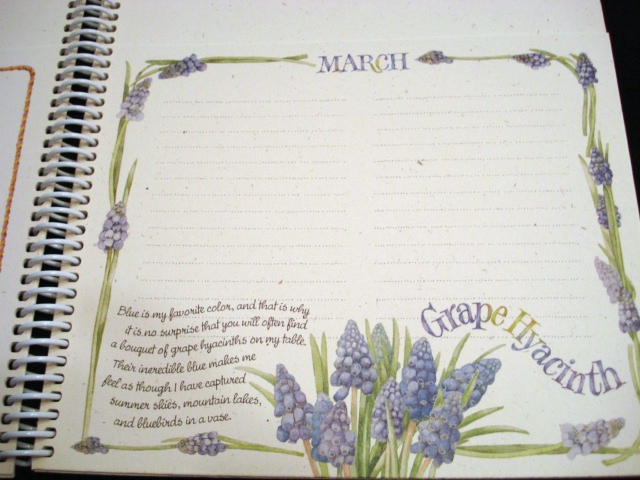 MARCH
Blue is my favorite color, and that is why
it is no surprise that you will often find
a bouquet of grape hyacinths on my table.
Their incredible blue makes me
feel as though I have captured
summer skies, mountain lakes,
and bluebirds in a vase.
Grape Hyacinth